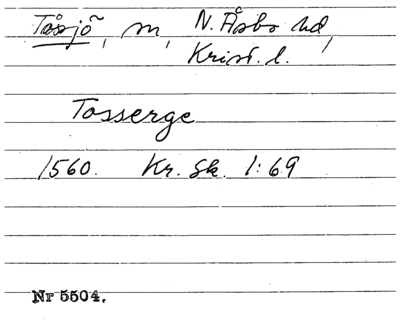 Tåssjö, m, N. Åsbo hd,
Krist. l.
Tosserge
1560. Kr. Sk. 1:69
Nr 5504.